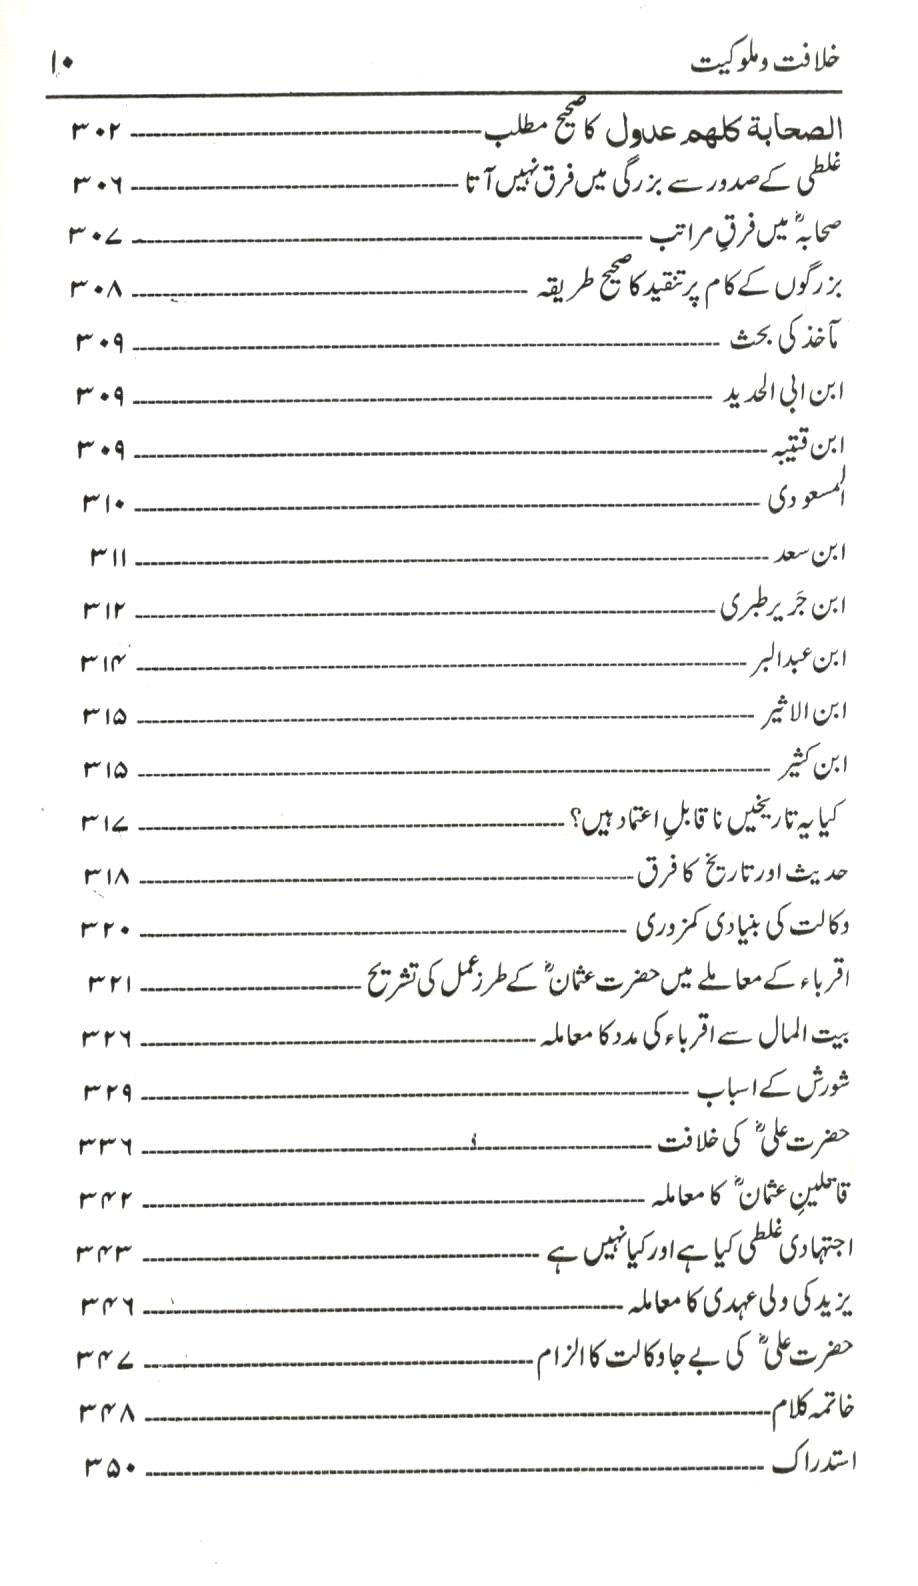 خلافت و ملوکیت ۱۰
الصحابة كلهم عدول کا صحیح مطلب ۳۰۲
غلطی کے صدور سے بزرگی میں فرق نہیں آتا ۳۰۶
صحابہؓ میں فرقِ مراتب ۳۰۷
بزرگوں کے کام پر تنقید کا صحیح طریقہ ۳۰۸
مآخذ کی بحث ۳۰۹
ابن ابی الحدید ۳۰۹
ابن قتیبہ ۳۰۹
المسعودی ۳۱۰
ابن سعد ۳۱۱
ابن جَریر طبری ۳۱۲
ابن عبدالبر ۳۱۴
ابن الاثیر ۳۱۵
ابن کثیر ۳۱۵
کیا یہ تاریخیں ناقابلِ اعتماد ہیں؟ ۳۱۷
حدیث اور تاریخ کا فرق ۳۱۸
وکالت کی بنیادی کمزوری ۳۲۰
اقرباء کے معاملے میں حضرت عثمانؓ کے طرز عمل کی تشریح ۳۲۱
بیت المال سے اقرباء کی مدد کا معاملہ ۳۲۶
شورش کے اسباب ۳۲۹
حضرت علیؓ کی خلافت ۳۳۶
قاتلینِ عثمانؓ کا معاملہ ۳۴۲
اجتہادی غلطی کیا ہے اور کیا نہیں ہے ۳۴۳
یزید کی ولی عہدی کا معاملہ ۳۴۶
حضرت علیؓ کی بے جا وکالت کا الزام ۳۴۷
خاتمہ کلام ۳۴۸
استدراک ۳۵۰